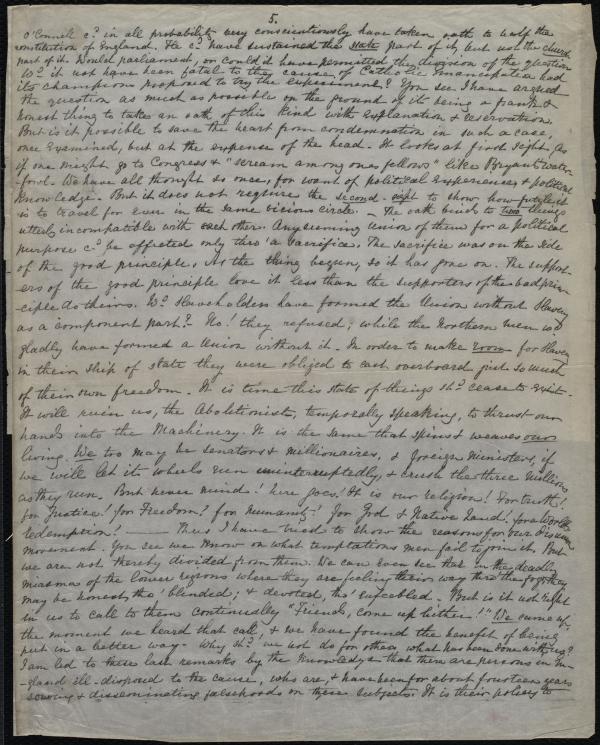 5.
O'Connell cd in all probability very conscientiously have taken oath to uphold the
constitution of England. He cd have sustained the state part of it, but not the church
part of it. Would parliament, or could it have permitted the division of the question
Wd it not have been fatal to the cause of Catholic emancipation had
its champions proposed to try the experiment? You see I have argued
the question as much as possible on the ground of its being a frank &
honest thing to take an oath of this kind with explanation & reservation.
But is it possible to save the heart from condemnation in such a case,
once examined, but at the expense of the head. It looks at first sight, as
if one might go to Congress & "scream among ones fellows" like Bryant's water-
fowl. We have all thought so once, for want of political experience & political
knowledge. But it does not require the second-sight to show how futile it
is to travel for ever in the same vicious circle. — The oath binds to two things
utterly incompatible with each other. Any seeming union of them for a political
purpose cd be effected only thro' a sacrifice. The sacrifice was on the side
of the good principle. As the thing began, so it has gone on. The support-
ers of the good principle love it less than the supporters of the bad prin-
ciple do theirs. Wd Slaveholders have formed the Union without Slavery
as a component part? No! they refused; while the Northern men wd
gladly have formed a Union without it. In order to make room for Slavery
in their ship of state they were obliged to cast overboard just so much
of their own freedom. It is time this state of things shd cease to exist.
It will ruin us, the Abolitionists, temporally speaking, to thrust our
hands into the Machinery. It is the same that spins & weaves our
living. We too may be senators & millionaires, & foreign Ministers, if
we will let its wheels run uninterruptedly, & crush the three millions
as they run. But never mind! here goes! It is our religion! For truth!
for Justice! for Freedom! for humanity! for God & Native land! for a World's
redemption! —— Thus I have tried to show the reasons for our disunion
movement. You see we know on what temptations men fail to join it. But
we are not thereby divided from them. We can even see that in the deadly
miasma of the lower regions where they are feeling their way thro' the fog they
may be honest, tho' blinded; & devoted, tho' enfeebled. But is it not right
in us to call to them continually "Friends, come up hither!" We came up,
the moment we heard that call, & we have found the benefit of being
put in a better way. Why shd we not do for others what has been done with us?
I am led to these last remarks by the knowledge that there are persons in En-
gland ill-disposed to the cause, who are, & have been for about fourteen years
sowing & disseminating falsehoods on these subjects. It is their policy to